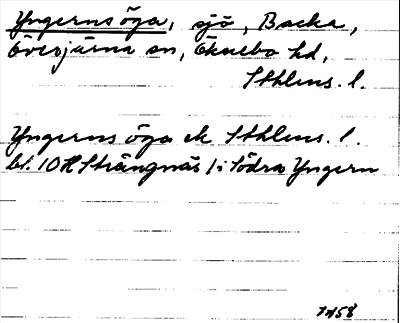 Yngerns öga, sjö, Backa,
Överjärna sn, Öknebo hd,
Sthlms. l.
Yngerns öga ek Sthlms. l.
bl. 10 H Strängnäs / i Södra Yngern
1958